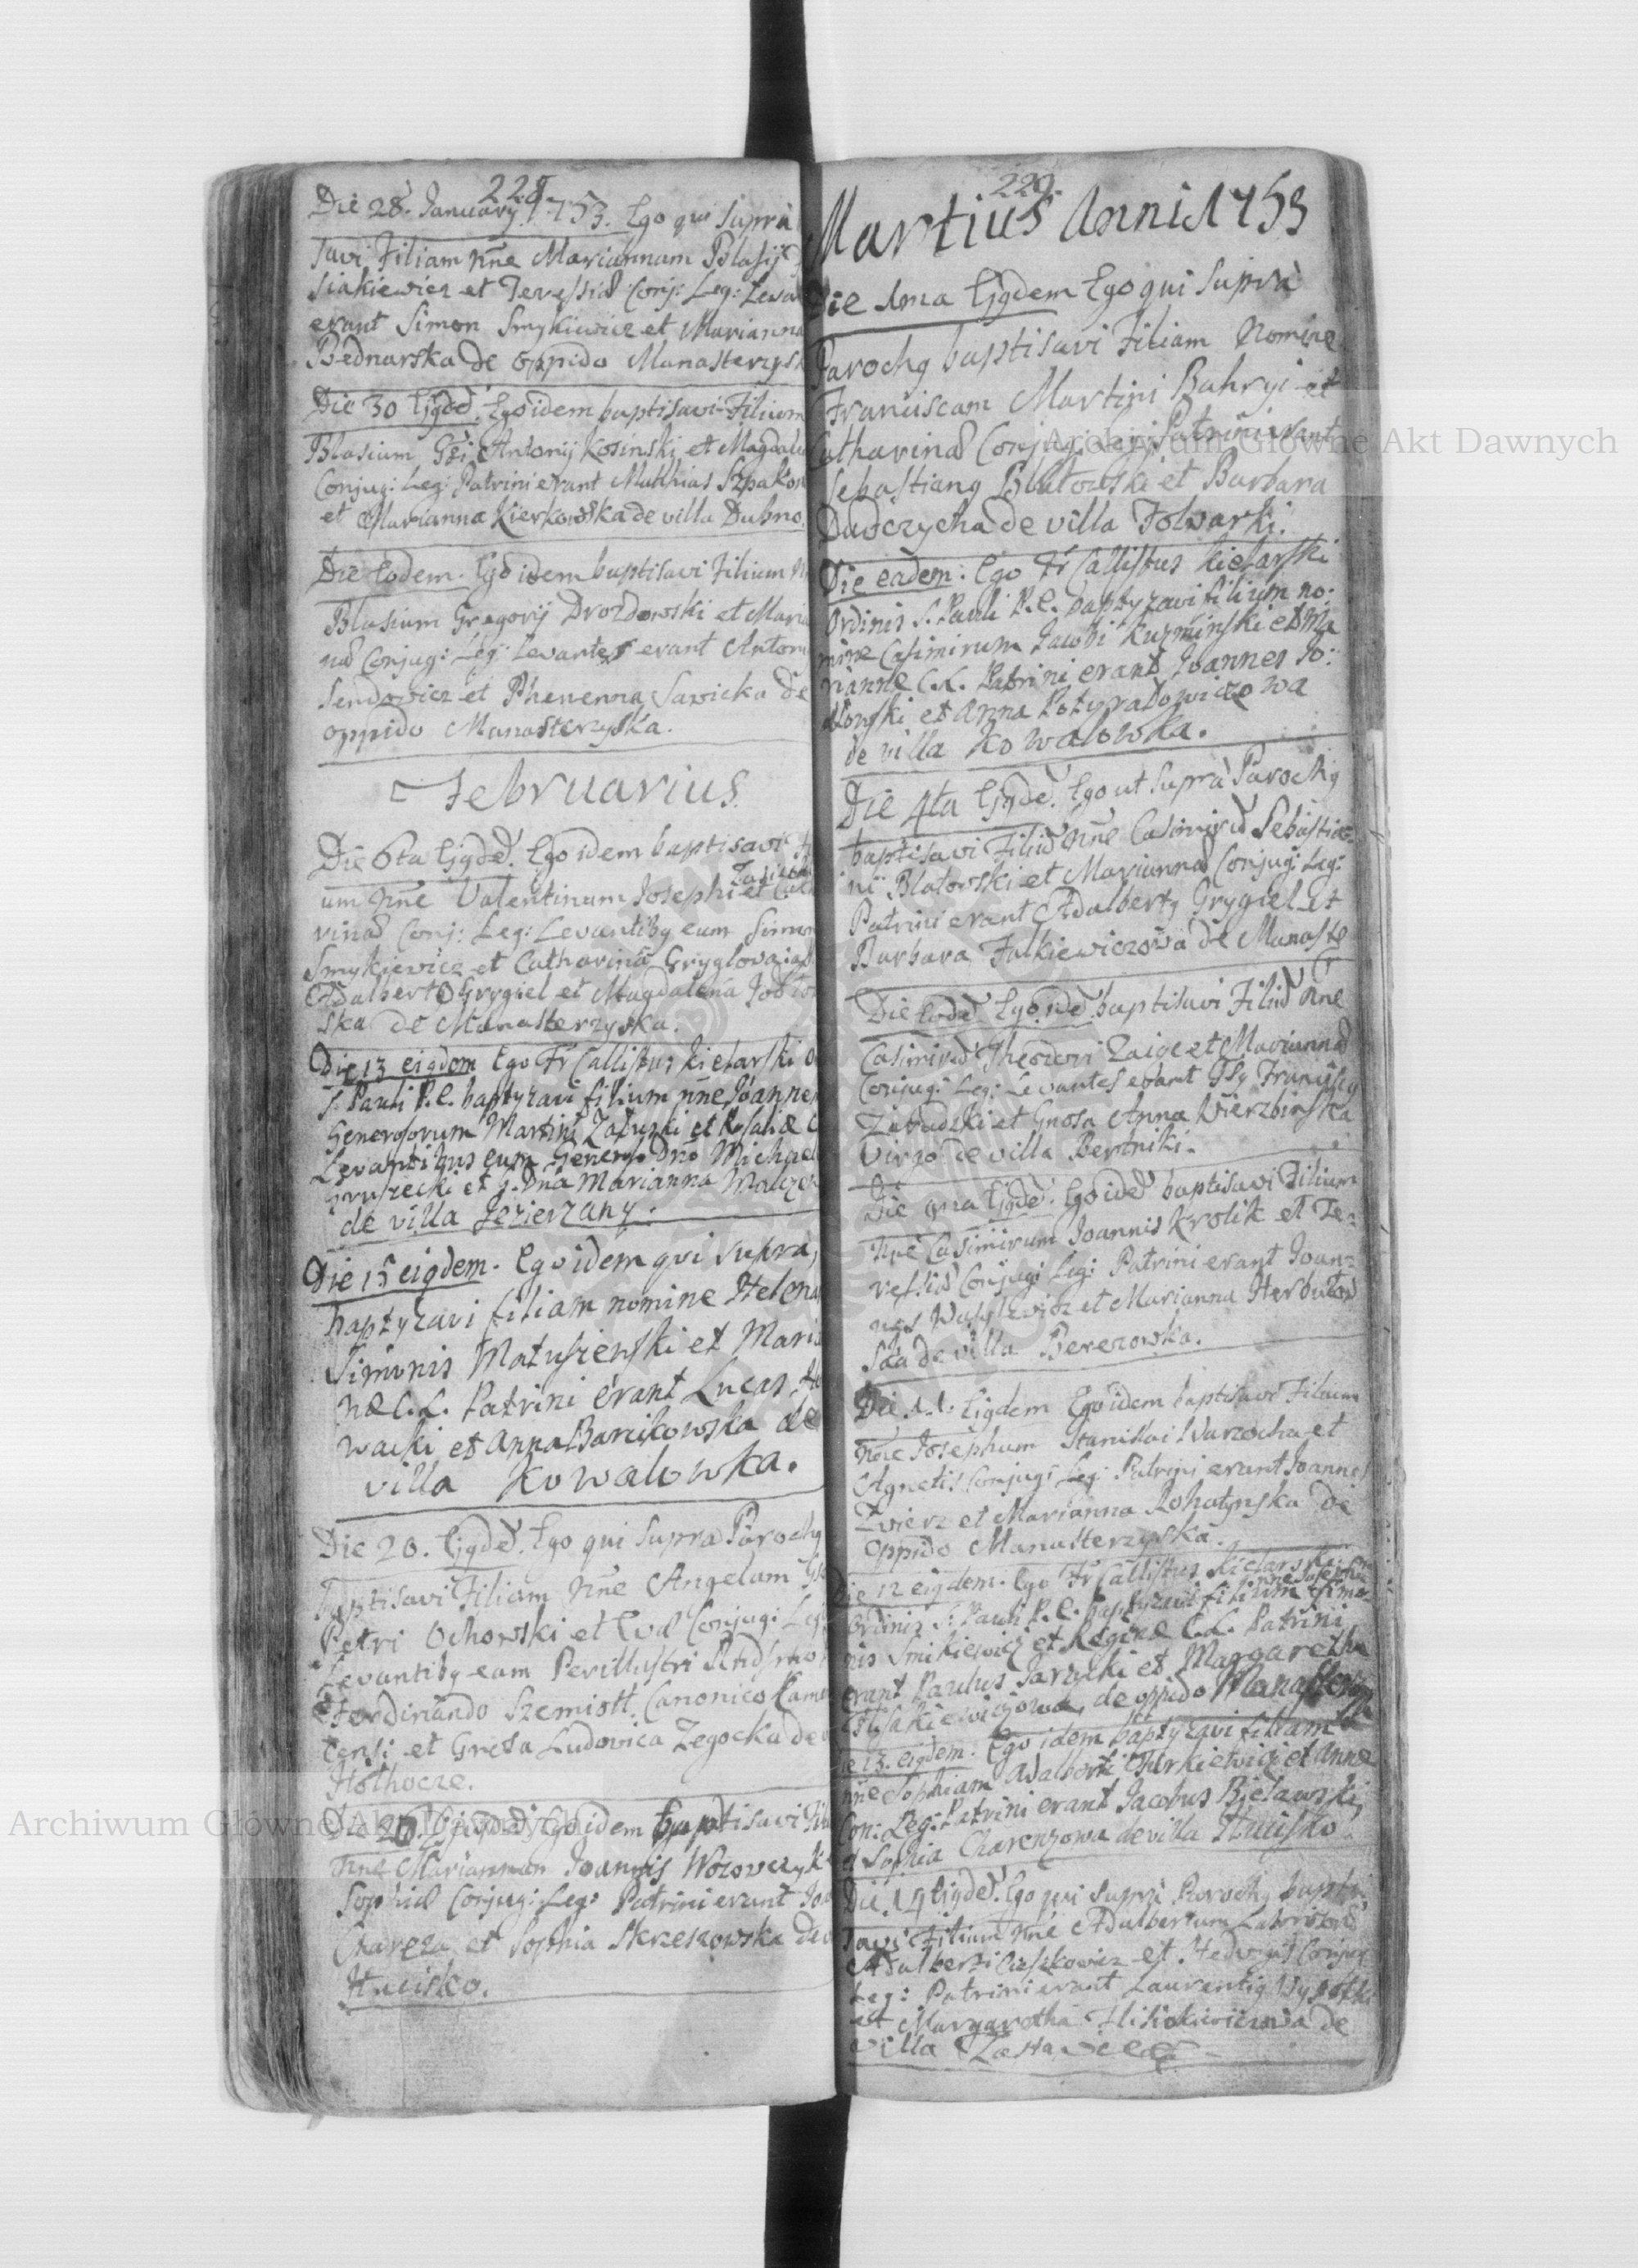 228
Die 28. January 1753. Ego qui supra
savi Filiam nne Mariannam Blasij
siakiewicz et Teressiæ Conj: Leg: Leva
erant Simon Smykiewicz et Marianna
Bednarska de oppido Manasterzysk
Die 30 Ejqde. Ego idem baptisavi Filium
Blasium Gsi Antonij Kosinski et Magdale
Conjug: Leg: Patrini erant Matthias Szpakow
et Marianna Kierkowska de villa Dubno.
Die Eodem. Ego idem baptisavi Filium N
Blasium Gregorij Drozdowski et Maria
næ Conjug: Leg: Levantes erant Anton
Sendowicz et Phenenna Sawicka de
oppido Manasterzyska.
Februarius
Die 6ta Ejqde. Ego idem baptisavi F
um Nne Valentinum Josephi et Cath
rinæ Conj: Leg: Levantibq eum Simon
Smykiewicz et Catharina Gryglowa
Adalberto Grygiel et Magdalena Jodłow
ska de Manasterzyska.
Die 13 eiqdem Ego Fr Callistus Kielarski O
S. Pauli P.E. baptyzavi filium nne Joannem
Generosorum Martini Załuski et Rosaliæ C
Levantibus eum Generoso Dno Michael
Gruszecki et G. Dna Marianna Malcze
de villa Jezierzany.
Die 15 eiqdem. Ego idem qvi supra,
baptyzavi filiam nomine Helena
Simonis Matusienski et Maria
næ C.L. Patrini erant Lucas
wacki et Anna Barcikowska de
villa Kowalowka.
Die 20. Ejqde. Ego qui supra Parochq
baptisavi Filiam Nne Angelam Gs
Petri Ochowski et Evæ Conjug: Leg
Levantibq eam Perillustri Rndsmo
Ferdinando Szemiott Canonico Kame
censi et Grosa Ludovica Zegocka de v
Hołhocze.
Die 26. Ejqde Ego idem baptisavi Fili
Nne Mariannam Joannis Wozowczyk
Sophiæ Conjug: Leg: Patrini erant Joa
Chareza et Sophia Skrzeszowska de v
Hucisko.
229.
Martius Anni 1753
Die 1ma Ejqdem Ego qui supra
Parochq baptisavi Filiam Nomine
Franciscam Martini Bahryi et
Catharinæ Conjug: Leg: Patrini erant
Sebastianq Błatowski et Barbara
Dudczycha de villa Folwarki.
Die eadem: Ego Fr Callistus Kielarski
Ordinis S. Pauli P.E. baptyzavi filium no:
mine Casimirum Jacobi Kuzminski et Ma
rianne C.L. Patrini erant Joannes Jo:
dłowski et Anna Potyradowiczowa
de villa Kowalowka.
Die 4ta Ejqde. Ego ut supra Parochq
baptisavi Filiu Nne Casimiru Sebastia=
ni Błatowski et Mariannæ Conjug: Leg:
Patrini erant Adalbertq Grygiel et
Barbara Falkiewiczowa de Manaste
Die Eode Ego ide baptisavi Filiu Nne
Casimiru Theodori Zaige et Mariannæ
Conjug: Leg: Levantes erant Gsq Franciscq
Zawadzki et Gnosa Anna Wierzbinska
Virgo de villa Bertniki.
Die 9na Ejqde. Ego ide baptisavi Filium
Nne Casimirum Joannis Krolik et Te=
ressiæ Conjug: Leg: Patrini erant Joan=
nes Wasylewicz et Marianna Herbutow
ska de villa Berezowka.
Die 11. Eiqdem Ego idem baptisavi Filium
nne Josephum Stanislai Warzocha et
Agnetis Conjug: Leg: Patrini erant Joannes
Zwierz et Marianna Rohatynska de
oppido Manasterzyska.
Die 12 eiqdem. Ego Fr Callistus Kielarski
Ordinis S. Pauli P.E. baptyzavi filium nne Josephum Simo-
nis Smikiewicz et Reginæ C.L. Patrini
erant Paulus Jarucki et Margaretha
de oppido Manasterzyska
Die 13. eiqdem. Ego idem baptyzavi filiam
nne Sophiam Adalberti Turkiewicz et Anne
Con: Leg: Patrini erant Jacobus Bielawski,
et Sophia Charenzowa de villa Hucisko.
Die 14 Eiqde. Ego qui supra Parochq bapti:
savi Filium Nne Adalbertum
Adalberti et Hedvigis Conjug:
Leg: Patrini erant Laurentiq Wysocki
et Margaretha Flisiakiewiczowa de
villa
Archiwum Główne Akt Dawnych
Archiwum Główne Akt Dawnych